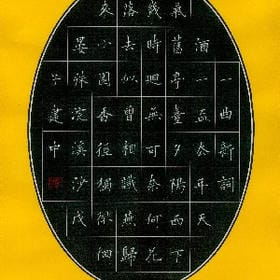 一曲新詞
酒一盃去年天
氣舊亭臺夕陽西下
幾時迴無可奈何花
落去似曾相識燕歸
來小園香徑獨徘徊
晏殊浣溪沙戊
子建中